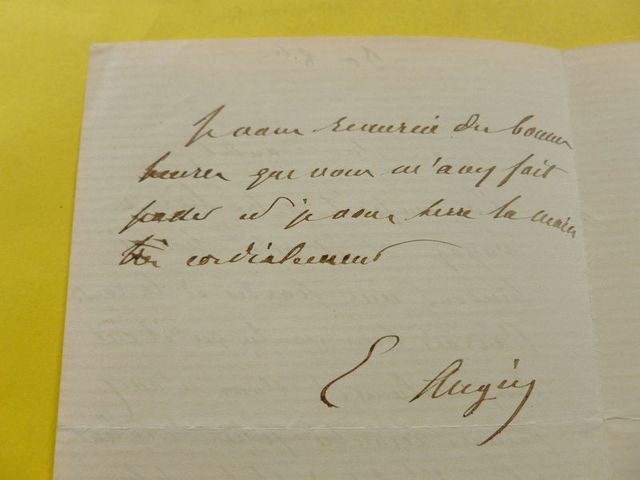 Je vous remercie des bonnes
heures que vous m'avez fait
passer et je vous serre la main
très cordialement
E Augier